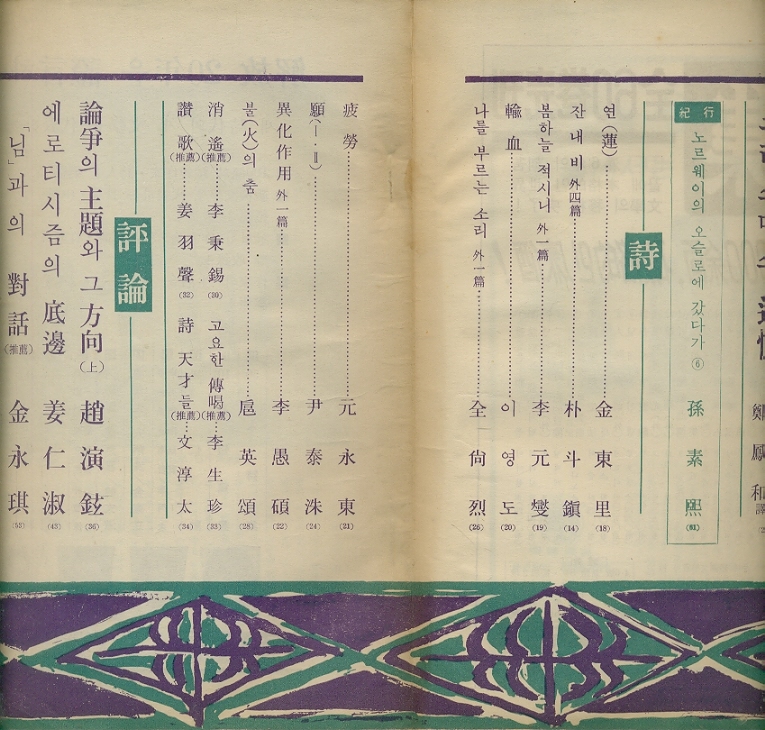 鄭鳳和譯
紀行
노르웨이의 오슬로에 갔다가 ⑥ 孫素熙 (81)
詩
연(蓮) 金東里 (18)
잔내비 外四篇 朴斗鎭 (14)
봄하늘 적시니 外一篇 李元燮 (19)
輸血 이영도 (20)
나를 부르는 소리 外一篇 全尙烈 (26)
疲勞 元永東 (21)
願(Ⅰ·Ⅱ) 尹泰洙 (24)
異化作用 外一篇 李愚碩 (22)
불(火)의 춤 扈英頌 (28)
消遙(推薦) 李秉錫 (30) 고요한 傳喝(推薦) 李生珍 (33)
讚歌(推薦) 姜羽聲 (32) 詩天才들(推薦) 文淳太 (34)
評論
論爭의 主題와 그 方向(上) 趙演鉉 (36)
에로티시즘의 底邊 姜仁淑 (43)
「님」과의 對話(推薦) 金永琪 (53)